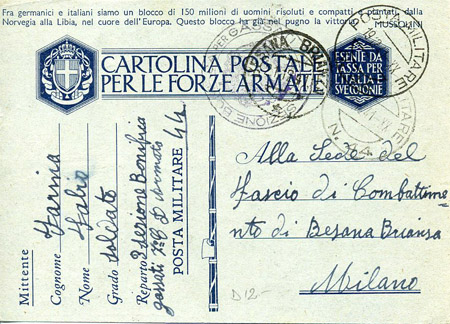 Fra germanici e italiani siamo un blocco di 150 milioni di uomini risoluti e compatti e piantati, dalla
Norvegia alla Libia, nel cuore dell'Europa. Questo blocco ha già nel pugno la vittoria. MUSSOLINI
CARTOLINA POSTALE
PER LE FORZE ARMATE
ESENTE DA
TASSA PER
L'ITALIA E
SVE COLONIE
POSTA MILITARE
N. 44
BESANA BRIANZA
Mittente
Cognome Farina
Nome Fabio
Grado soldato
Reparto sezione Bonifica
gassati
POSTA MILITARE 44
Alla Sede del
Fascio di Combattime
nto di Besana Brianza
Milano
D 12-